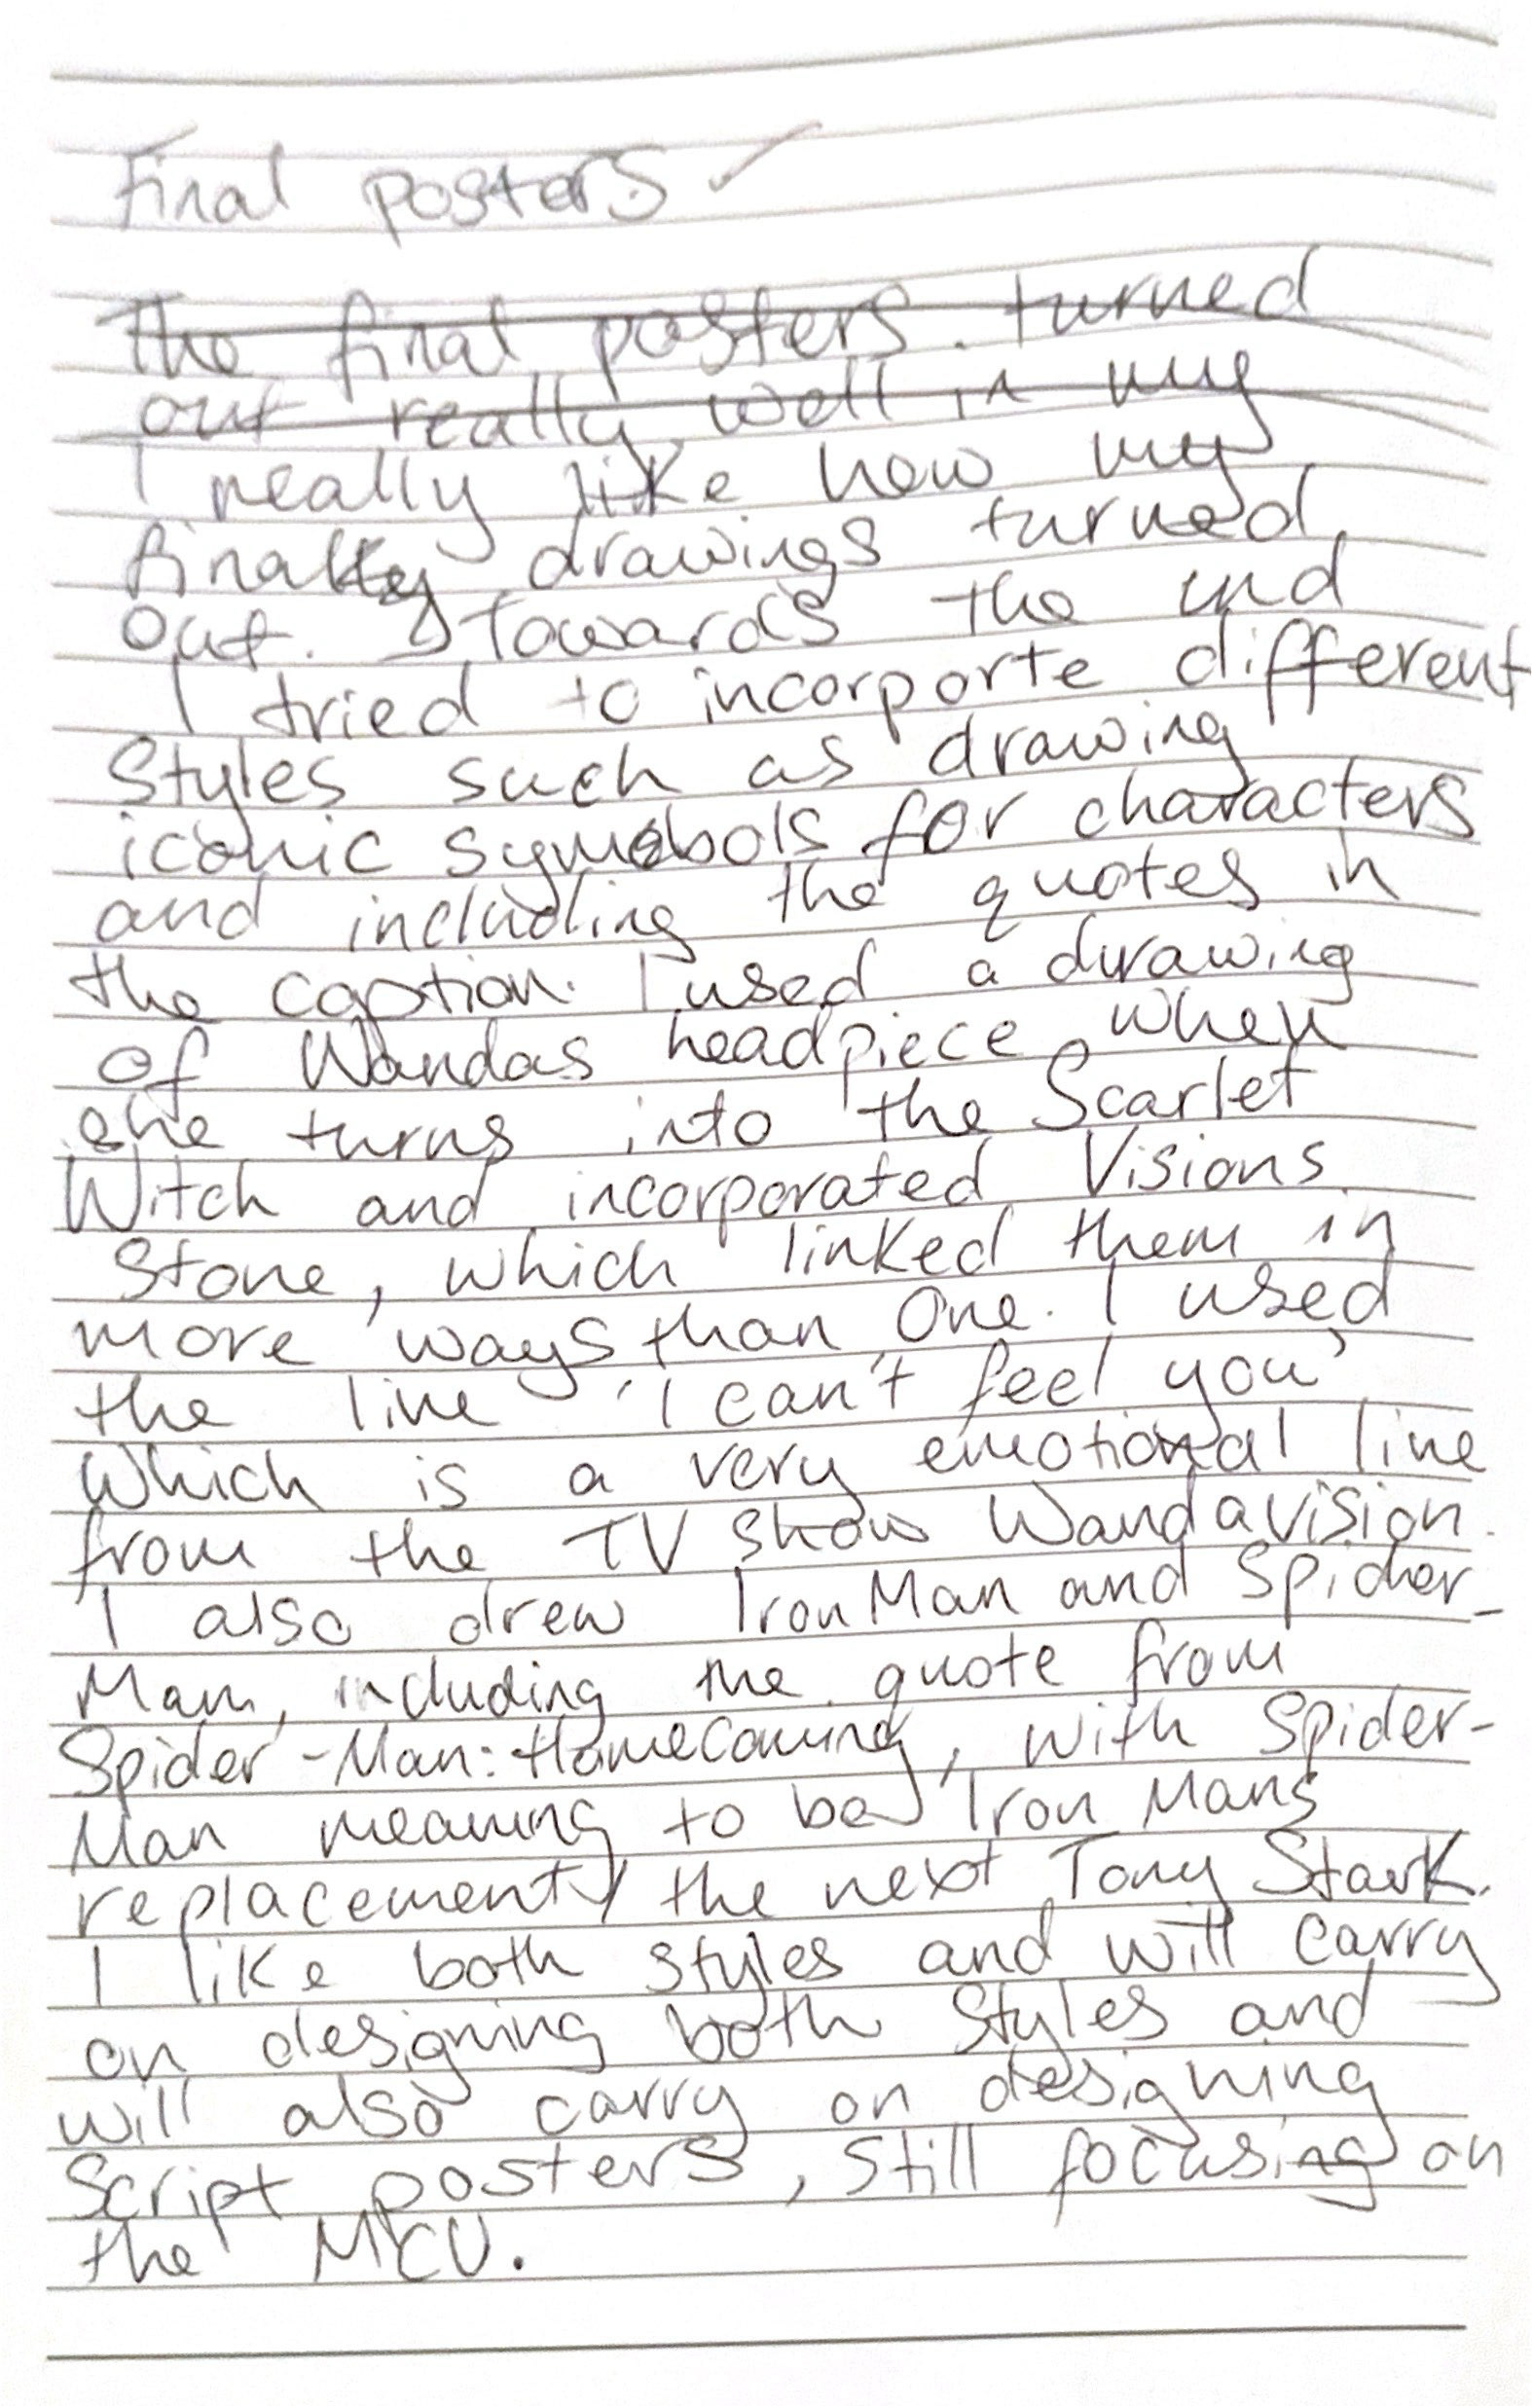 Final posters ✓
The final posters turned
out really well in my
I really like how my
final drawings turned
out. Towards the end
I tried to incorporte different
styles such as drawing
iconic symbols for characters
and including the quotes in
the caption. I used a drawing
of Wandas headpiece when
she turns into the Scarlet
Witch and incorporated Visions
Stone, which linked them in
more ways than One. I used
the line 'I can't feel you'
which is a very emotional line
from the TV show Wandavision.
I also drew Iron Man and Spider-
Man, including the quote from
Spider-Man: Homecoming, with Spider-
Man meaning to be Iron Mans
replacement / the next Tony Stark.
I like both styles and will carry
on designing both styles and
will also carry on designing
Script posters, still focusing on
the MCU.